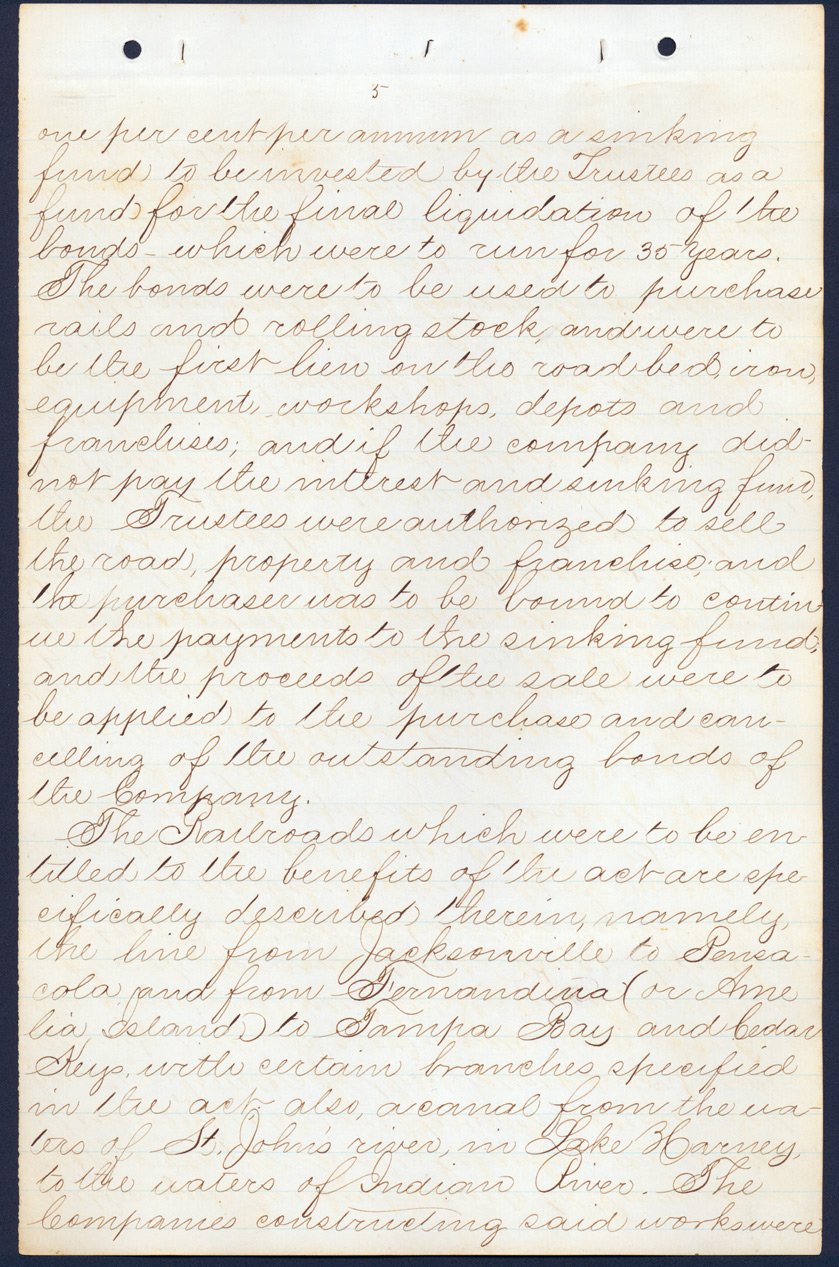 5
one per cent per annum as a sinking
fund to be invested by the Trustees as a
fund for the final liquidation of the
bonds - which were to run for 35 years.
The bonds were to be used to purchase
rails and rolling stock, and were to
be the first lien on the road bed, iron,
equipment, workshops, depots and
franchises; and if the company did
not pay the interest and sinking fund,
the Trustees were authorized to sell
the road, property and franchise; and
the purchaser was to be bound to contin
ue the payments to the sinking fund;
and the proceeds of the sale were to
be applied to the purchase and can-
celling of the outstanding bonds of
the Company.
The Railroads which were to be en-
titled to the benefits of the act are spe
cifically described therein, namely,
the line from Jacksonville to Pensa-
cola and from Fernandina (or Ame
lia Island) to Tampa Bay and Cedar
Keys, with certain branches specified
in the act, also, a canal from the wa-
ters of St. John's river, in Lake Harney,
to the waters of Indian River. The
Companies constructing said works were